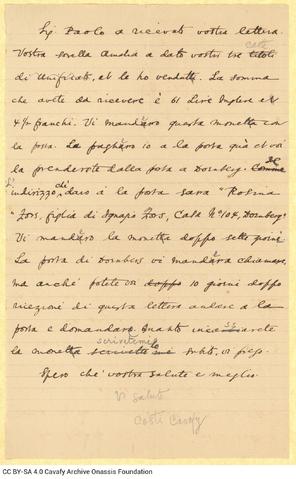 Sig Paolo a ricevuto vostra lettera.
Vostra sorella Amalia a dato vostri tre titoli
di Unificato, et lo ho venduto. La somma
che avete da ricevere è 61 Lire Inglese e
4½ franchi. Vi mandàro questa monetta con
la posta. La paghàro io a la posta et voi
la prenderete dalla posta a Dornberg. Comme
L'indirizzo che daro à la posta sara "Rosina
"Zors, figlia di Ignazio Zors, Casa N° 104, Dornberg"
Vi mandàro la monetta doppo sette giorni
La posta di Dornberg vi mandàra chiamare,
ma anchi potete voi doppo 10 giorni doppo
ricezione di questa lettera andare a la
posta e domandaro. Quanto incassarete
scrivetemi
la monetta subito, vi prego.
Spero che vostra salute e meglio.
Vi saluto
Costi Cavafy
CC BY-SA 4.0 Cavafy Archive Onassis Foundation